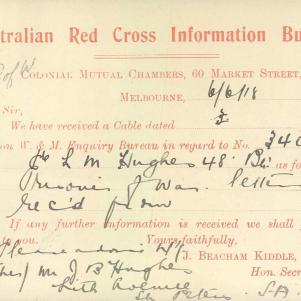 tralian Red Cross Information Bu
P of W
COLONIAL MUTUAL CHAMBERS, 60 MARKET STREET,
MELBOURNE, 6/6/18
Sir,
We have received a Cable dated
on W. & M. Enquiry Bureau in regard to No. 340
L M Hughes 48" Bn: as fo
Prisoner of War. letter
rec'd from
If any further information is received we shall
to you. Yours faithfully,
Please advise
J. BEACHAM KIDDLE,
Mr J B Hughes
Hon. Secre
Sixth Avenue
St Peters S.A.